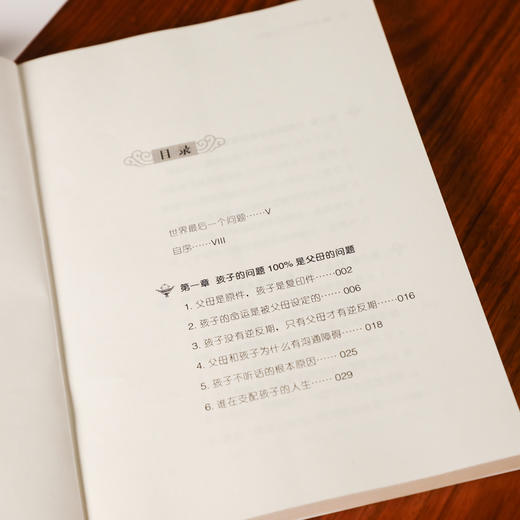 目录
世界最后一个问题……V
自序……VIII
第一章 孩子的问题 100% 是父母的问题
1. 父母是原件，孩子是复印件……002
2. 孩子的命运是被父母设定的……006
3. 孩子没有逆反期，只有父母才有逆反期……016
4. 父母和孩子为什么有沟通障碍……018
5. 孩子不听话的根本原因……025
6. 谁在支配孩子的人生……029